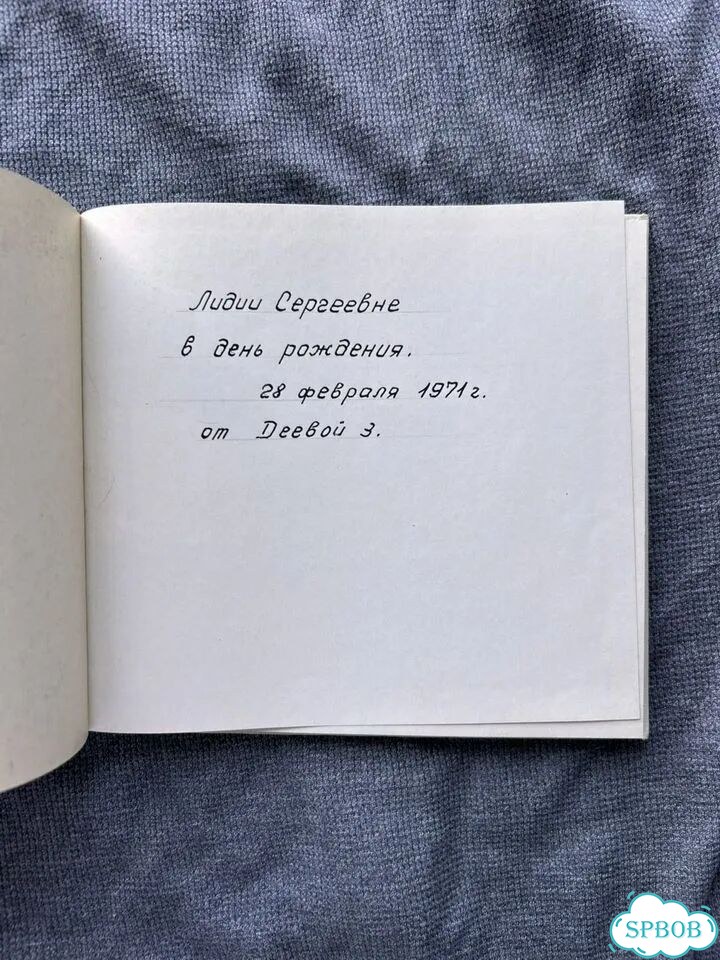 Лидии Сергеевне
в день рождения.
28 февраля 1971 г.
от Деевой З.
SPBOB